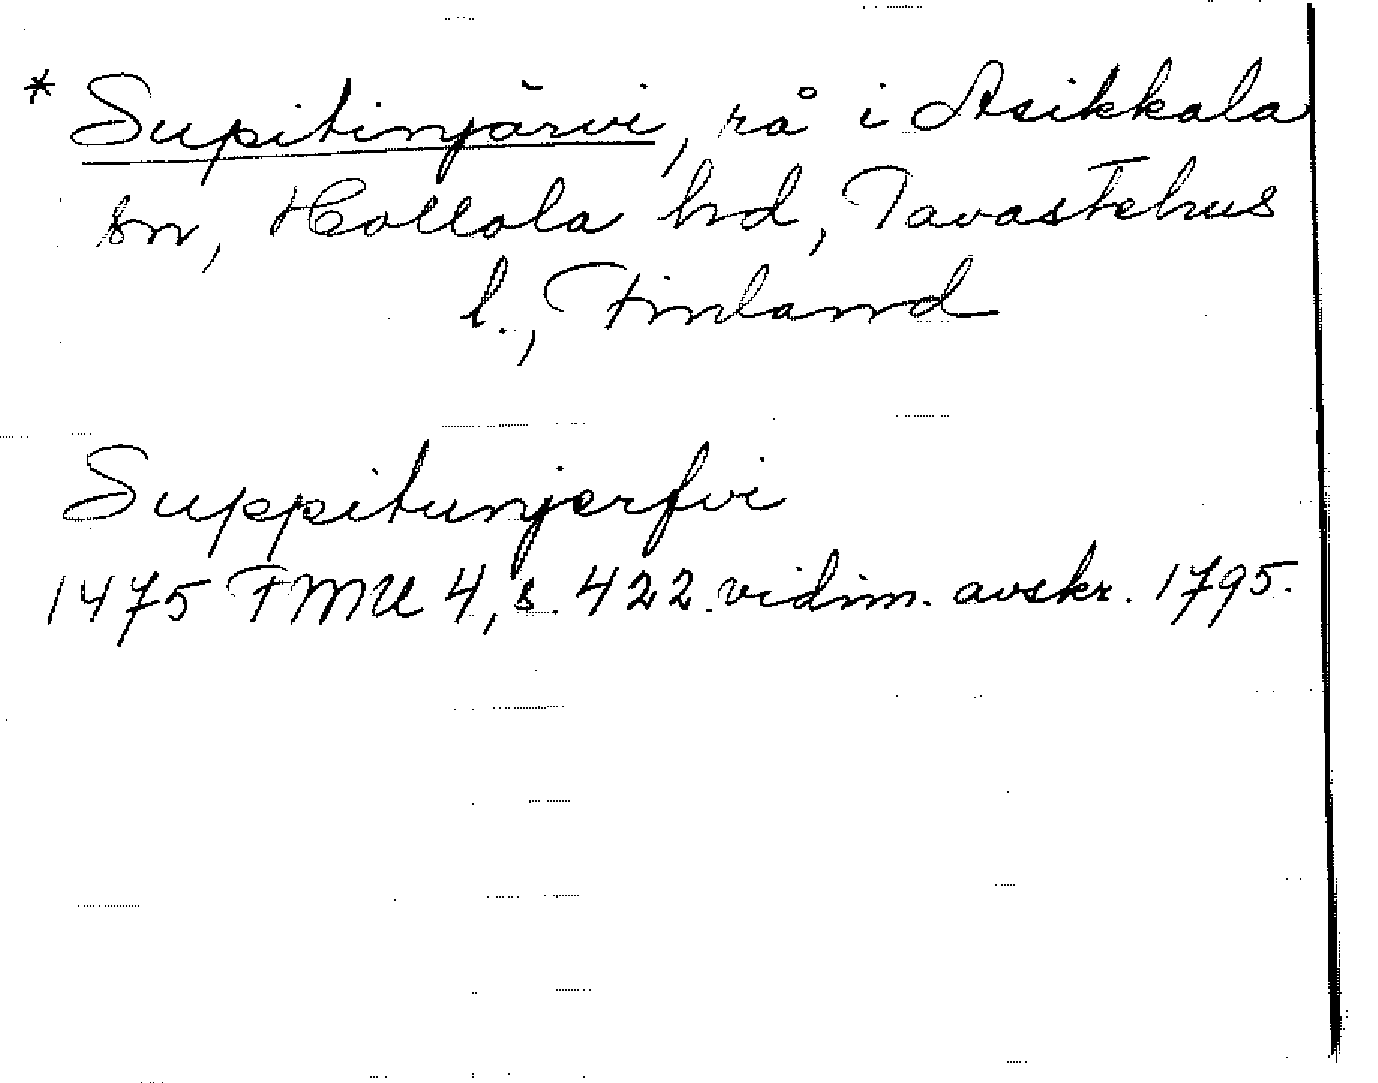 * Supitinjärvi, rå i Asikkala
sn, Hollola hd, Tavastehus
l., Finland
Suppitunjerfvi
1475 FMU 4, s. 422. vidim. avskr. 1795.